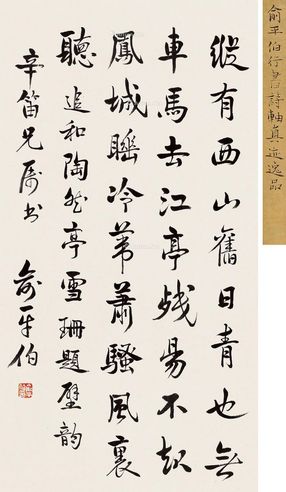 俞平伯行書詩軸真迹逸品
縱有西山舊日青也無
車馬去江亭殘陽不起
鳳城睡冷葦蕭騷風裏
聽 追和陶然亭雪珊題壁韻
辛笛兄屬書 俞平伯